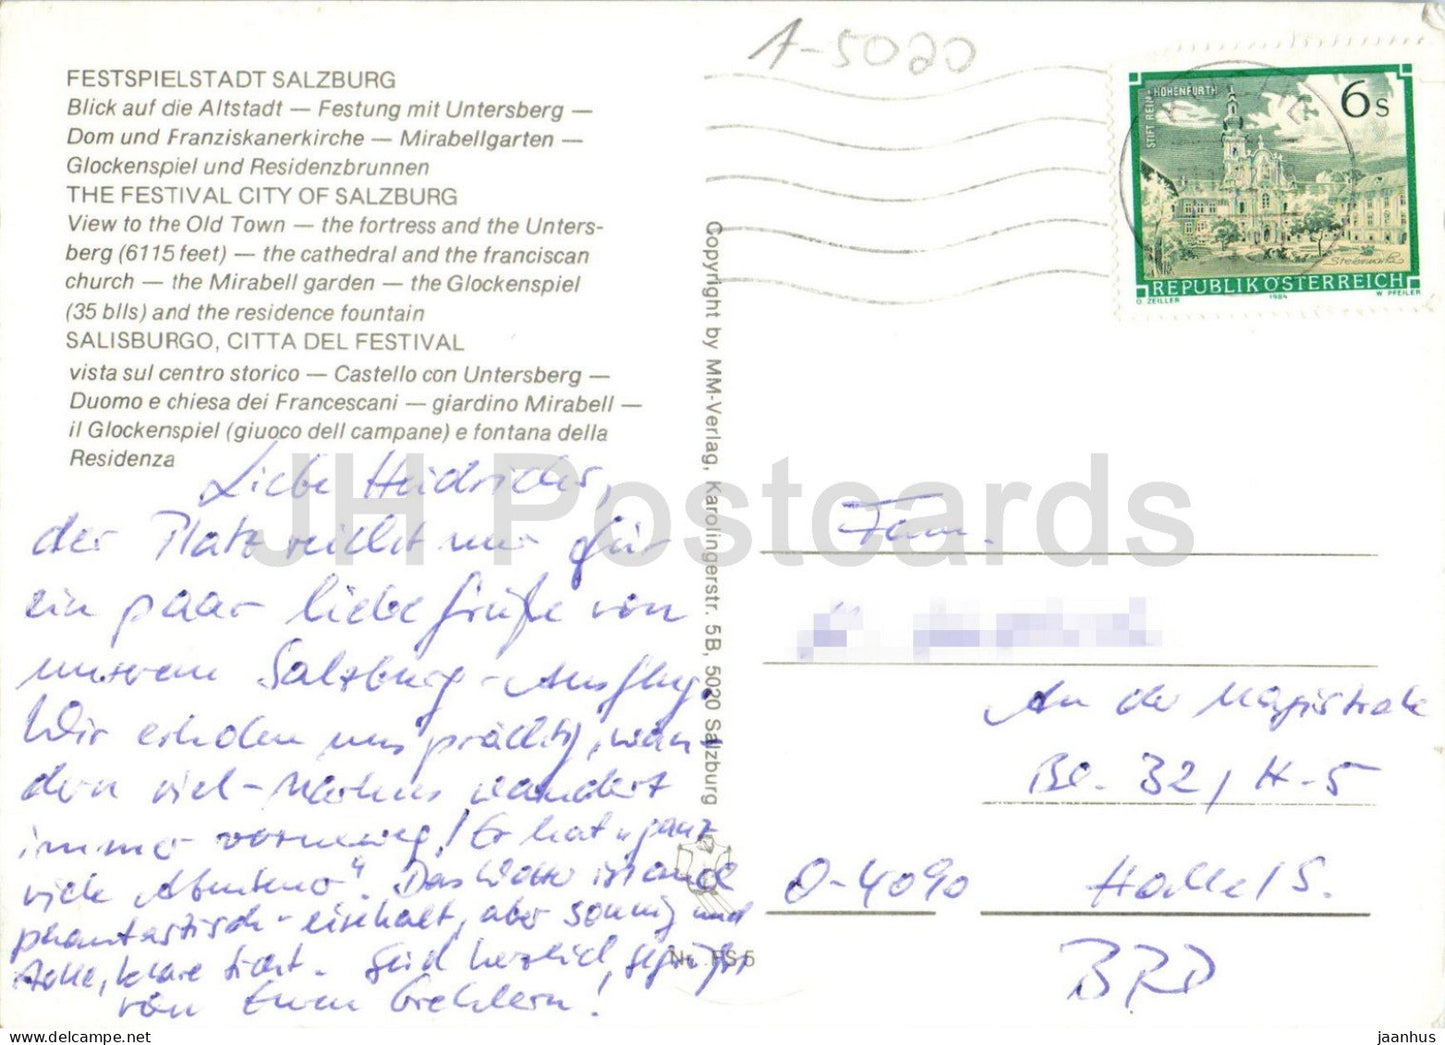 A-5020
FESTSPIELSTADT SALZBURG
Blick auf die Altstadt — Festung mit Untersberg —
Dom und Franziskanerkirche — Mirabellgarten —
Glockenspiel und Residenzbrunnen
THE FESTIVAL CITY OF SALZBURG
View to the Old Town — the fortress and the Unters-
berg (6115 feet) — the cathedral and the franciscan
church — the Mirabell garden — the Glockenspiel
(35 blls) and the residence fountain
SALISBURGO, CITTA DEL FESTIVAL
vista sul centro storico — Castello con Untersberg —
Duomo e chiesa dei Francescani — giardino Mirabell —
il Glockenspiel (giuoco dell campane) e fontana della
Residenza
Liebe
der Platz reicht nur für
ein paar liebe Grüße von
unserem Salzburg-Ausflug.
Wir erholen uns prächtig, wan-
dern viel - Markus wandert
immer vorneweg! Er hat "ganz
viele Abenteuer". Das Wetter ist
phantastisch - eiskalt, aber sonnig und
tolle, klare Sicht. Seid herzlich gegrüßt
von Euren Gehlern!
Copyright by MM-Verlag, Karolingerstr. 5B, 5020 Salzburg
Nr. FS 5
STIFT REIN-HOHENFURTH
6 S
Steiermark
REPUBLIK ÖSTERREICH
O. ZEILLER 1984 W. PFEILER
Fam.
An der Magistrale
Bl. 32 / H-5
O-4090 Halle/S.
BRD
JH Postcards
jaanhus